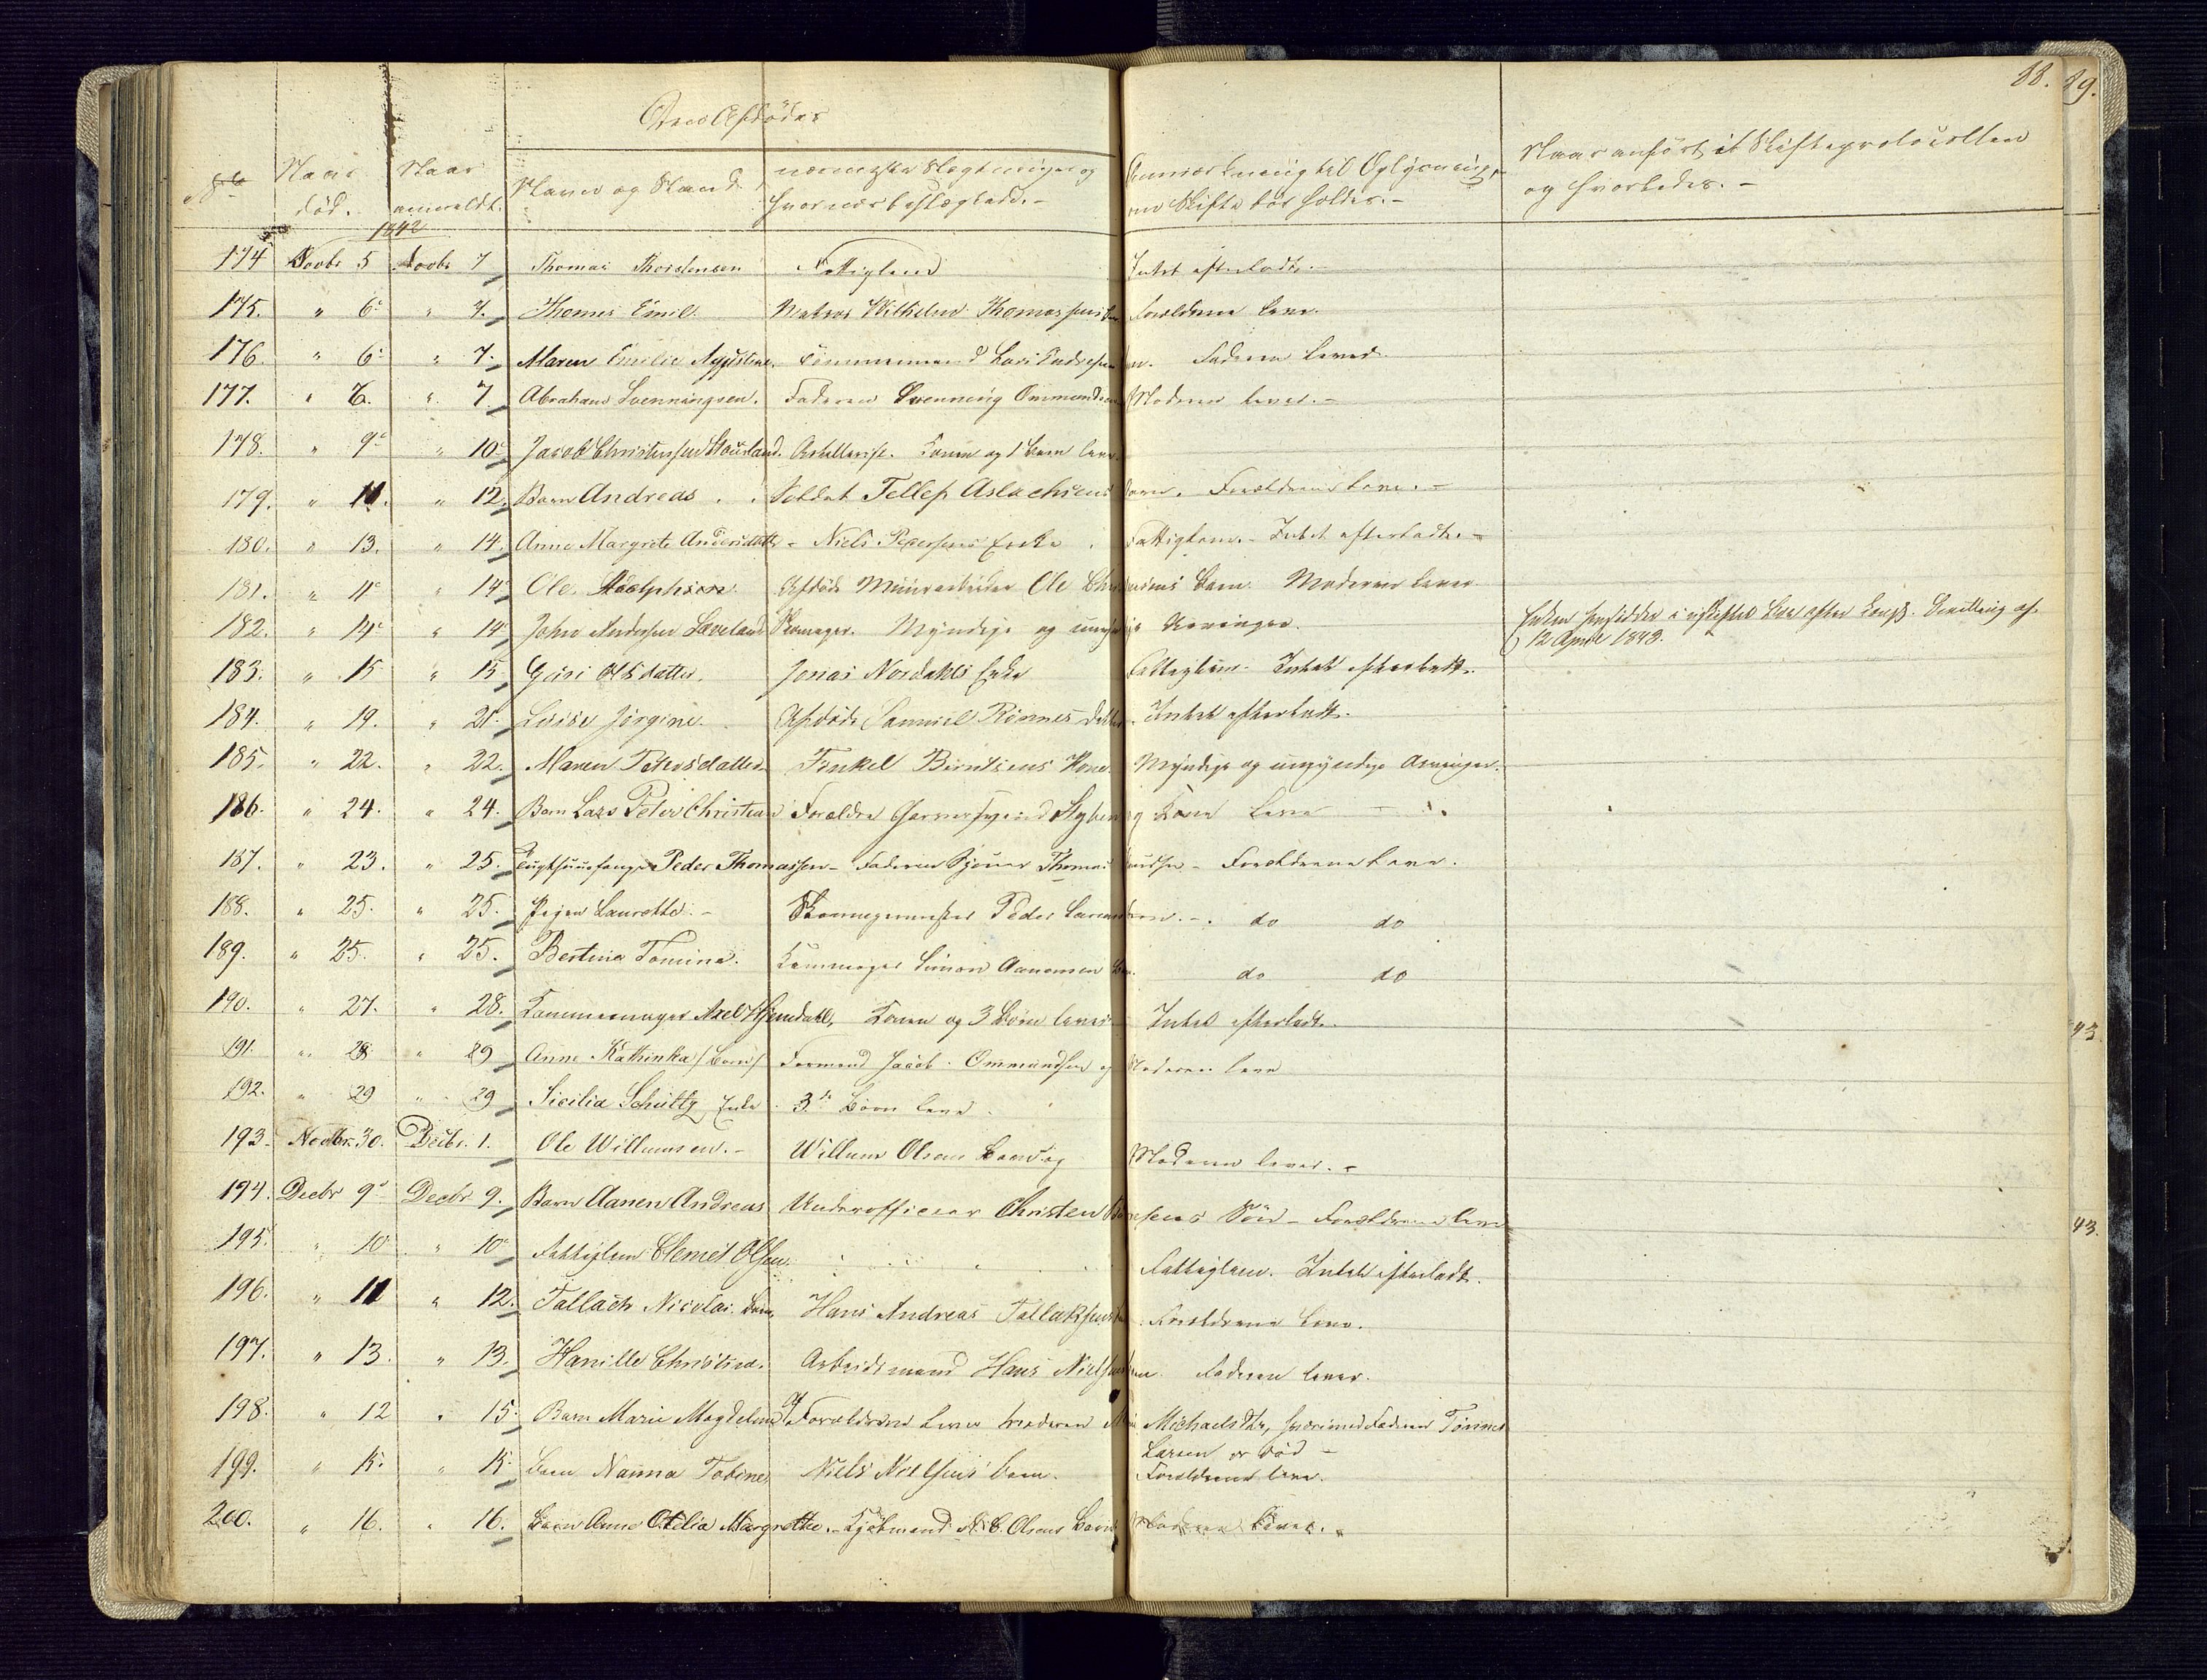 88. 89.
Den Afdødes
No Naar død. Naar anmeldt. Navn og Stand. nærmeste Slægtninger og hvor nær beslægtede. - Anmærkning til Oplysning, om Skifte bør holdes. - Naar anført i Skifteprotocollen og hvorledes. -
1842
174 Novbr 5 Novbr 7 Thomas Thorstensen Fattiglem Intet efterladt. -
175. " 6. " 7. Thomas Emil. Matros Wilhelm Thomassens Forældrene lever.
176. " 6. " 7. Maren Emilie Augustine. Tømmermand Lars Endresens Faderen lever.
177. " 6. " 7 Abraham Svenningsen. Faderen Svenning Ommundsen Moderen lever. -
178. " 9. " 10. Jacob Christensen Stousland. Artillerist. Konen og 1 Barn lever.
179. " 11. " 12. Barn Andreas. Soldat Tellef Aslachsens Barn. Forældrene lever. -
180. " 13. " 14. Anne Margrete Andersdatter - Niels Pedersens Enke. Fattiglem. - Intet efterladt. -
181. " 11. " 14. Ole Adolphsen. Afdøde Muurarbeider Ole Barn. Moderen lever
182. " 14. " 14. John Andersen Løveland Skomager. Myndige og umyndige Arvinger. Enken hensidder i uskiftet Boe efter Kongl. Bevilling af
12 April 1843.
183. " 15 " 15. Guri Olsdatter. Jonas Nordahls Enke Fattiglem. Intet efterladt.
184. " 19. " 21. Lovise Jørgine. Afdøde Samuel Rømnes Datter. Intet efterladt.
185. " 22. " 22. Maren Petersdatter Terkel Berntsens Kone. Myndige og umyndige Arvinger.
186. " 24. " 24. Barn Lars Peter Christian Forældre Garversvend og Kone lever
187. " 23. " 25. Tugthuusfange Peder Thomassen - Faderen Thomas Knudsen - Forældrene lever.
188. " 25. " 25. Pigen Laurette. - Skomagermester Peder do do
189. " 25. " 25. Bertine Tomine. Kammager Simon Aanonsen do do
190. " 27. " 28. Kammager Axel Hjemdahl, Konen og 3 Børn lever Intet efterladt.
191. " 28 " 29 Anne Kathinka /Barn/ Formand Jacob Ommundsen og Moderen lever
192. " 29 " 29 Sicilia Schultz Enke. 3de Børn lever.
193. Novbr. 30. Decbr. 1. Ole Willumsen. - Willum Olsens Barn og Moderen lever. -
194. Decbr 9. Decbr 9. Barn Aanen Andreas Underofficeer Christen Søn - Forældrene lever
195. " 10 " 10 Fattiglem Clemet Olsen. Fattiglem. Intet efterladt.
196. " 11 " 12. Tallach Nicolai. Barn Hans Andreas Tallaksens Forældrene lever.
197. " 13. " 13. Hanille Christine. Arbeidsmand Hans Nielsens Faderen lever.
198. " 12 " 15. Barn Marie Magdelene Af Forældrene lever Moderen Michaelsdtr, hvorimod Faderen Tønnes
Larsen er død -
199. " 15. " 15. Barn Nanna Tobine, Niels Nielsens Barn. Forældrene lever.
200. " 16. " 16. Barn Anne Otelia Margrethe. - Kjøbmand Olsens Barn Moderen lever. -
43
43.